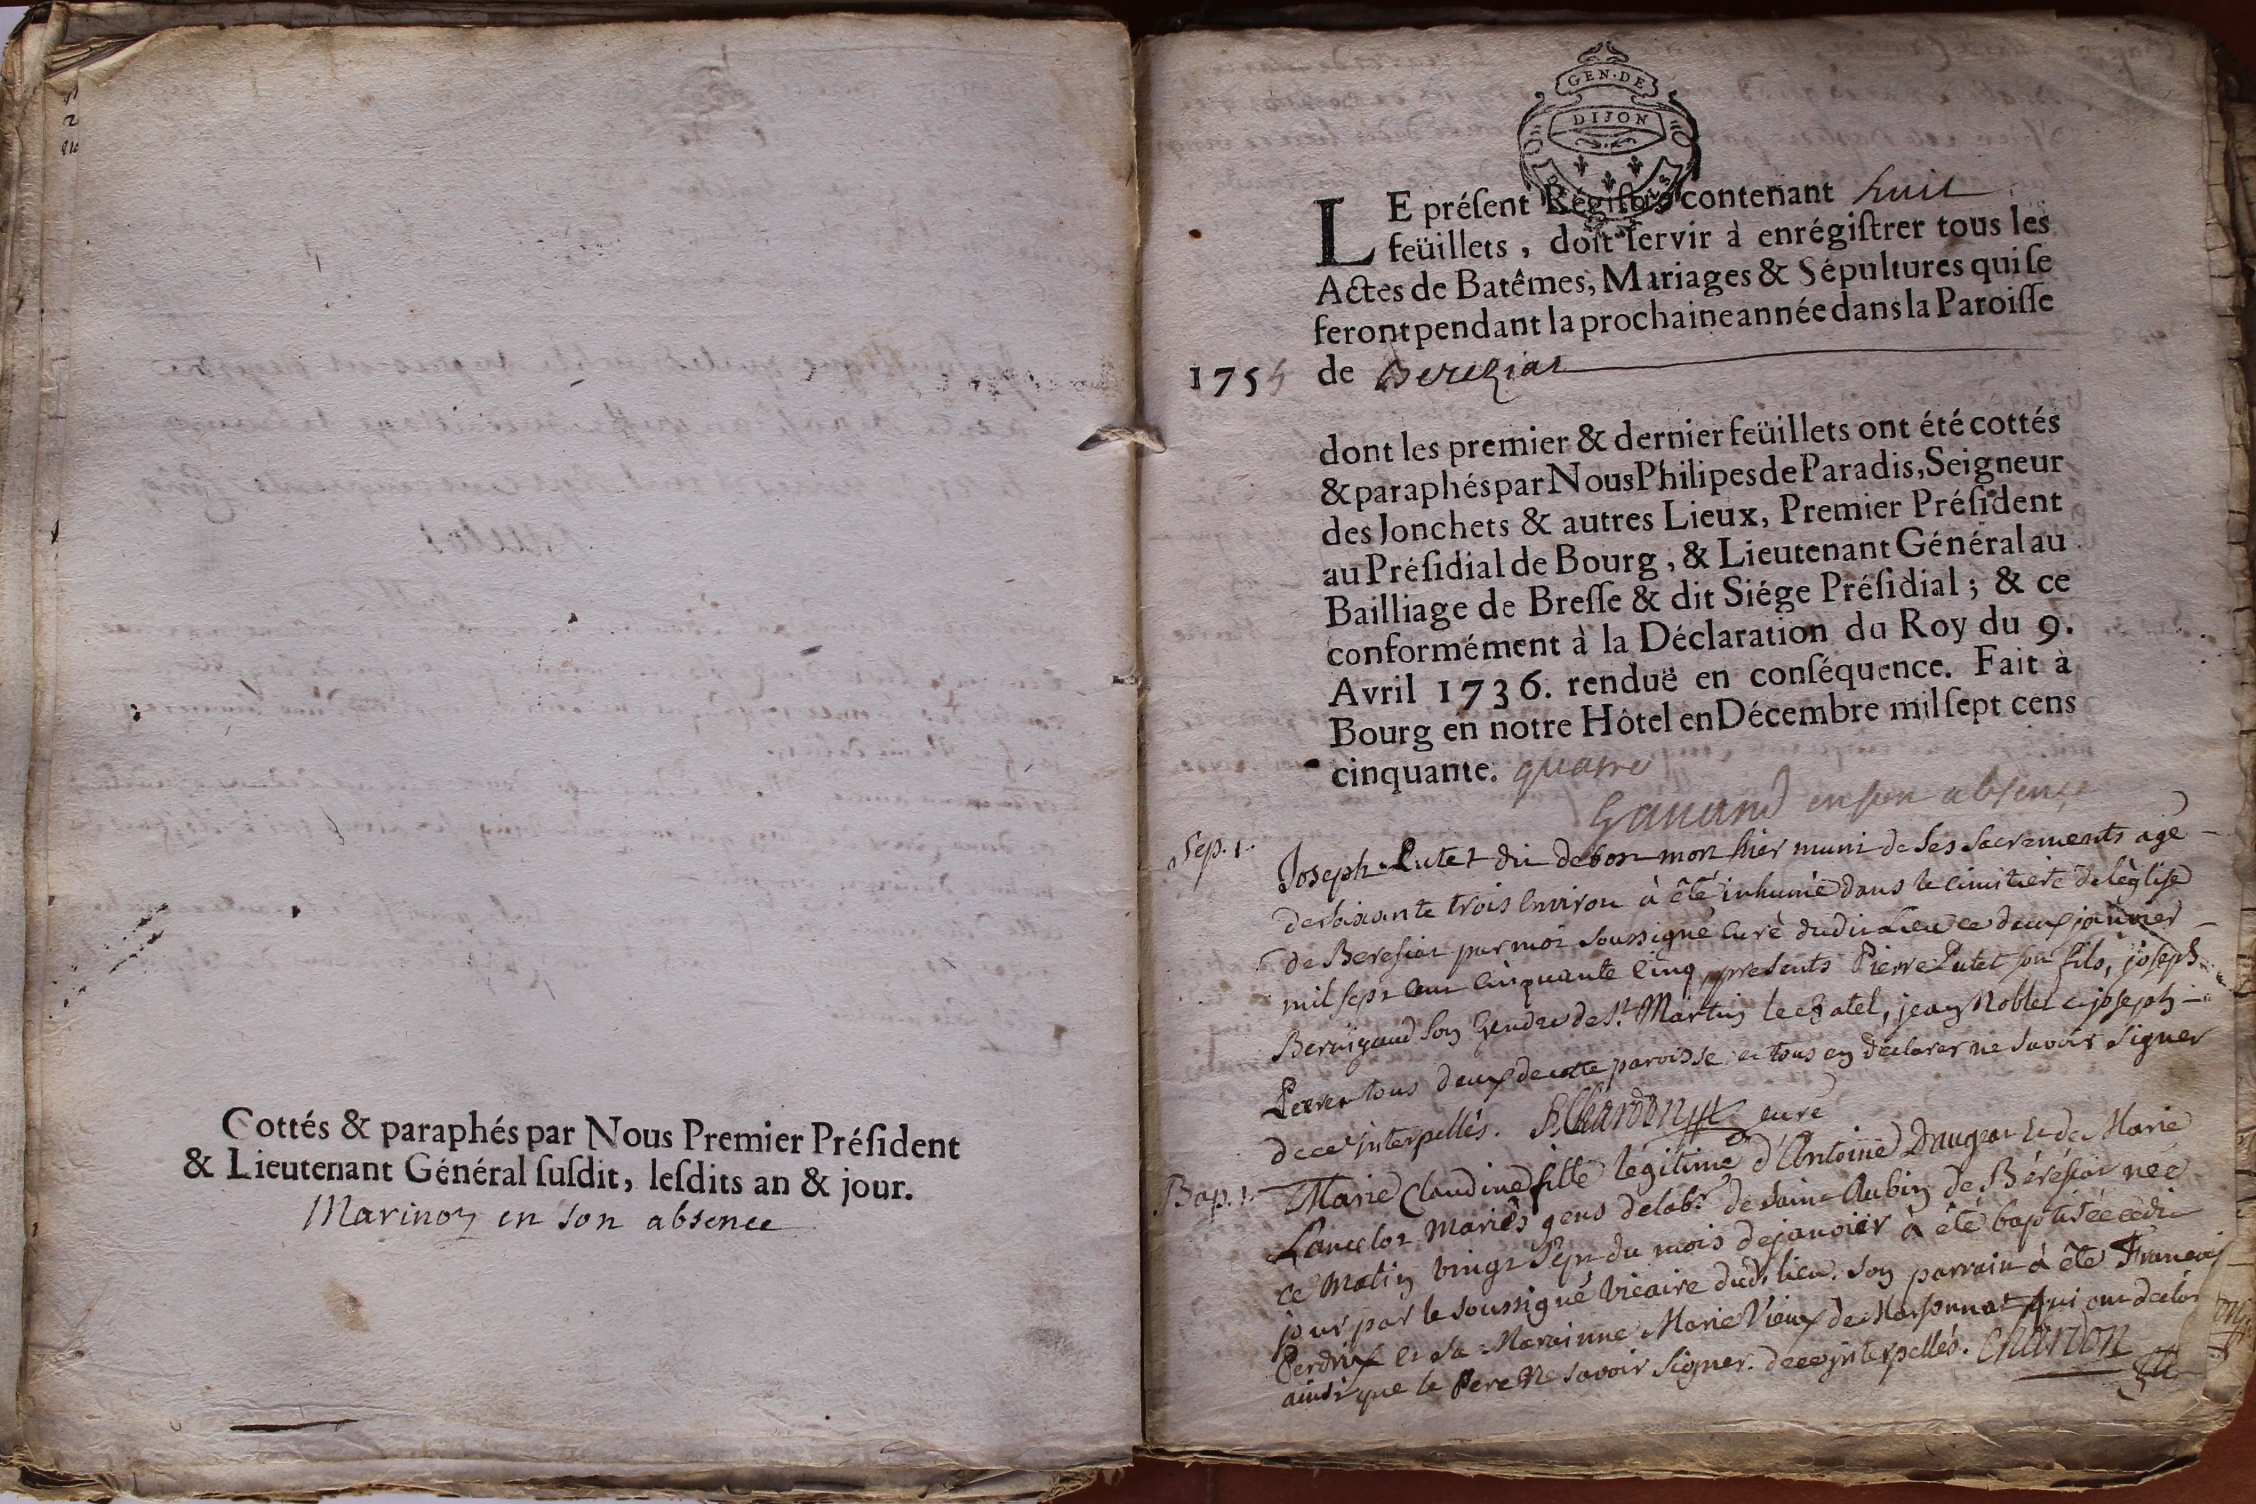 Cottés & paraphés par Nous Premier Préſident
& Lieutenant Général ſuſdit, leſdits an & jour.
Marinon en son absence
GEN·DE
DIJON
LE préſent Régiſtre contenant huit
feüillets, doit ſervir à enrégiſtrer tous les
Actes de Batêmes, Mariages & Sépultures qui ſe
feront pendant la prochaine année dans la Paroiſſe
1755 de Bereziat
dont les premier & dernier feüillets ont été cottés
& paraphés par Nous Philipes de Paradis, Seigneur
des Jonchets & autres Lieux, Premier Préſident
au Préſidial de Bourg, & Lieutenant Général au
Bailliage de Breſſe & dit Siége Préſidial; & ce
conformément à la Déclaration du Roy du 9.
Avril 1736. renduë en conſéquence. Fait à
Bourg en notre Hôtel en Décembre mil ſept cens
cinquante. quatre
en son absence
Sep. 1. Joseph Putet dit debost mort hier muni de ses sacrements agé
de soixante trois environ à été inhumé dans le cimitiere de l'église
de Beresiat par moi soussigné curé dudit Lieu ce deux janvier
mil sept cent cinquante cinq, presents Pierre Putet son fils, joseph
son Gendre de St. Martin le chatel, jean Noblet & joseph
tous deux de cette paroisse et tous en déclaré ne savoir signer
de ce interpellés. Chardonet curé
Bap. 1. Marie Claudine fille légitime d'Antoine et de Marie
Lancelot mariés gens de labr. de saint Aubin de Bérésiat née
ce matin vingt sept du mois de janvier à été baptisée cedit
jour par le soussigné vicaire dudt. lieu. son parrain à été Francois
Perdrix et sa Marainne Marie Vieux de Marsonnat qui ont déclaré
ainsi que le Pere ne savoir signer. de ce interpellés. Chardon